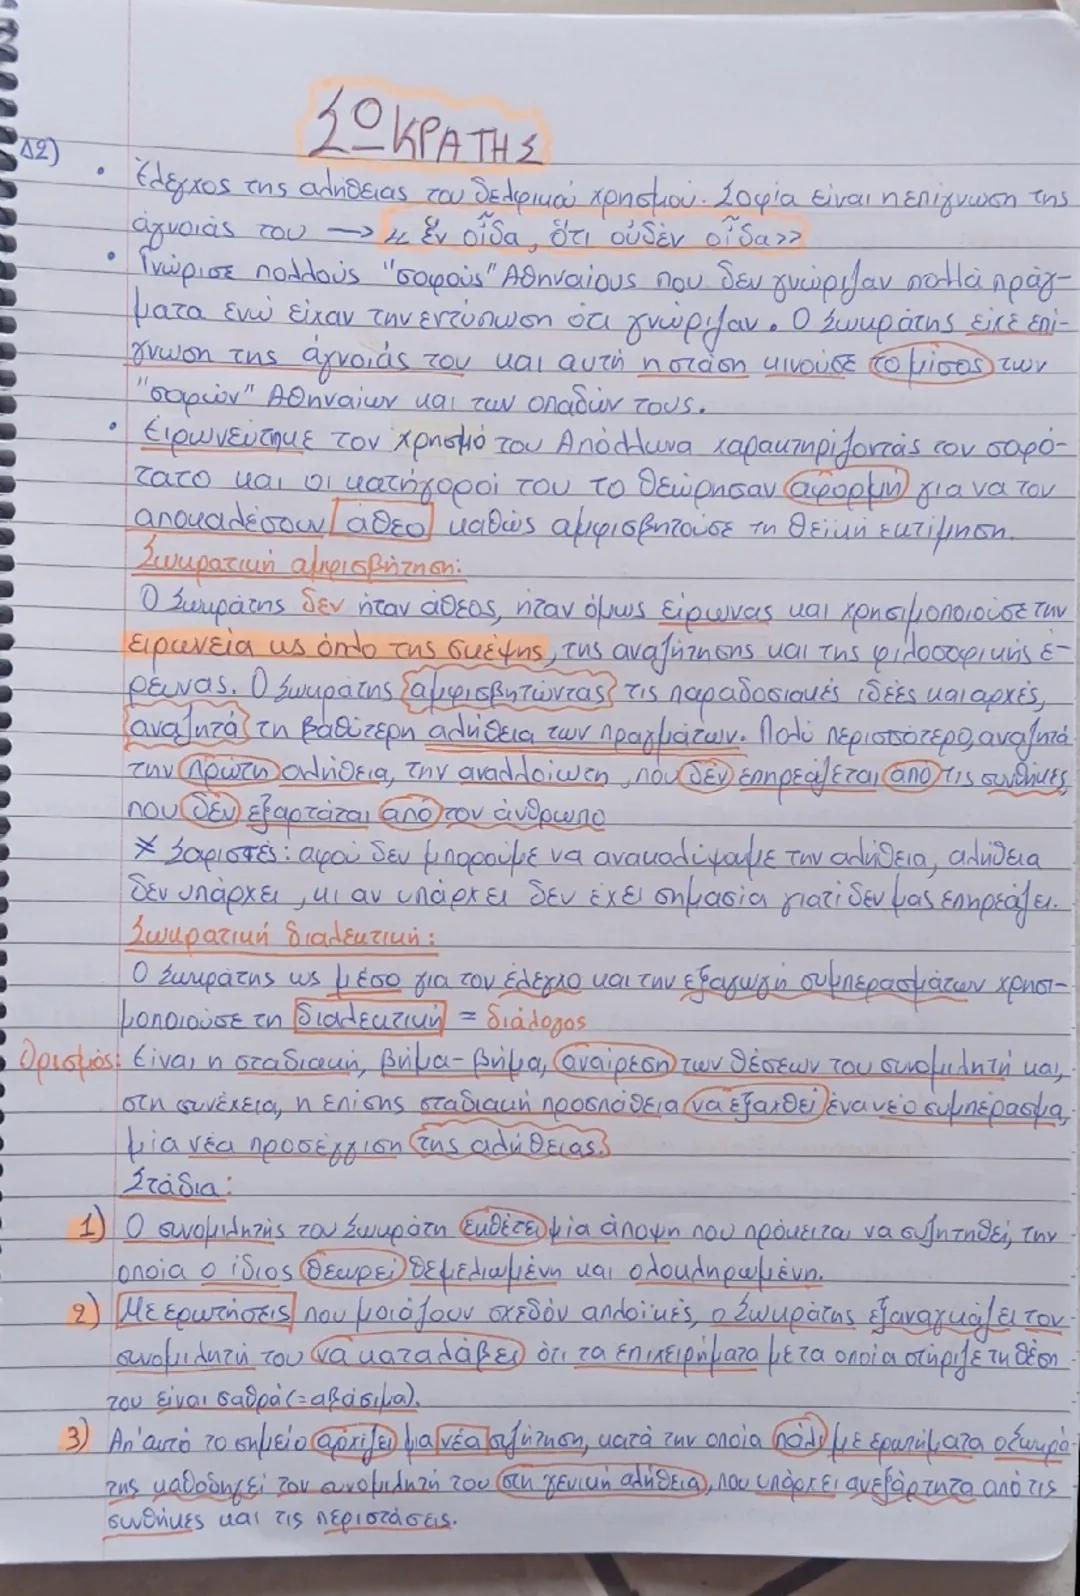 ΣΩΚΡΑΤΗΣ
Δ2)
• Έλεγχος της αλήθειας του δελφικού χρησμού. Σοφία είναι η επίγνωση της
άγνοιάς του → « ἕν οἶδα, ὅτι οὐδέν οἶδα»
• Γνώρισε πολλούς "σοφούς" Αθηναίους που δεν γνώριζαν πολλά πράγ-
ματα ενώ είχαν την εντύπωση ότι γνώριζαν. Ο Σωκράτης είχε επί-
γνωση της άγνοιάς του και αυτή η στάση κινούσε το μίσος των
"σοφών" Αθηναίων και των οπαδών τους.
• Ειρωνεύτηκε τον χρησμό του Απόλλωνα χαρακτηρίζοντάς τον σοφό-
τατο και οι κατήγοροί του το θεώρησαν αφορμή για να τον
αποκαλέσουν άθεο καθώς αμφισβητούσε τη θεϊκή εκτίμηση.
Σωκρατική αμφισβήτηση:
Ο Σωκράτης δεν ήταν άθεος, ήταν όμως είρωνας και χρησιμοποιούσε την
ειρωνεία ως όπλο της σκέψης, της αναζήτησης και της φιλοσοφικής έ-
ρευνας. Ο Σωκράτης αμφισβητώντας τις παραδοσιακές ιδέες και αρχές,
αναζητά τη βαθύτερη αλήθεια των πραγμάτων. Πολύ περισσότερο, αναζητά
την πρώτη αλήθεια, την αναλλοίωτη, που δεν επηρεάζεται από τις συνθήκες,
που δεν εξαρτάται από τον άνθρωπο
* Σοφιστές: αφού δεν μπορούμε να ανακαλύψουμε την αλήθεια, αλήθεια
δεν υπάρχει, κι αν υπάρχει δεν έχει σημασία γιατί δεν μας επηρεάζει.
Σωκρατική διαλεκτική:
Ο Σωκράτης ως μέσο για τον έλεγχο και την εξαγωγή συμπερασμάτων χρησι-
μοποιούσε τη διαλεκτική = διάλογος
Ορισμός: Είναι η σταδιακή, βήμα-βήμα, αναίρεση των θέσεων του συνομιλητή και,
στη συνέχεια, η επίσης σταδιακή προσπάθεια να εξαχθεί ένα νέο συμπέρασμα,
μία νέα προσέγγιση της αλήθειας.
Στάδια:
1) Ο συνομιλητής του Σωκράτη εκθέτει μία άποψη που πρόκειται να συζητηθεί, την
οποία ο ίδιος θεωρεί θεμελιωμένη και ολοκληρωμένη.
2) Με ερωτήσεις που μοιάζουν σχεδόν απλοϊκές, ο Σωκράτης εξαναγκάζει τον
συνομιλητή του να καταλάβει ότι τα επιχειρήματα με τα οποία στήριζε τη θέση
του είναι σαθρά (=αβάσιμα).
3) Απ'αυτό το σημείο αρχίζει μια νέα συζήτηση, κατά την οποία πάλι με ερωτήματα ο Σωκρά-
της καθοδηγεί τον συνομιλητή του στη γενική αλήθεια, που υπάρχει ανεξάρτητα από τις
συνθήκες και τις περιστάσεις.